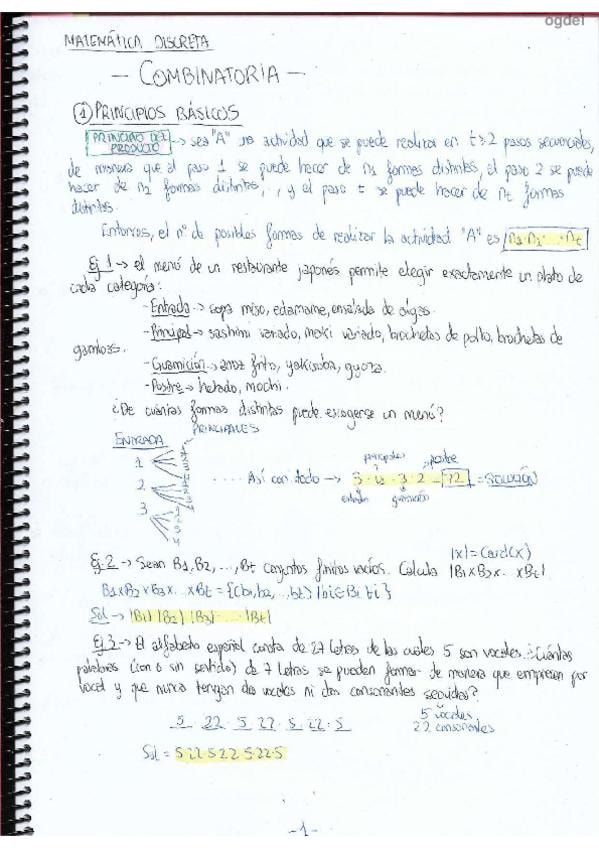 ogdei
MATEMÁTICA DISCRETA
- COMBINATORIA -
① PRINCIPIOS BÁSICOS
PRINCIPIO DEL PRODUCTO → sea "A" una actividad que se puede realizar en t≥2 pasos secuenciales,
de manera que el paso 1 se puede hacer de n1 formas distintas, el paso 2 se puede
hacer de n2 formas distintas, .., y el paso t se puede hacer de nt formas
distintas.
Entonces, el nº de posibles formas de realizar la actividad "A" es n1·n2·...·nt
Ej 1 → el menú de un restaurante japonés permite elegir exactamente un plato de
cada categoría:
- Entrada → sopa miso, edamame, ensalada de algas.
- Principal → sashimi variado, maki variado, brochetas de pollo, brochetas de
gambas.
- Guarnición → arroz frito, yakisoba, gyoza.
- Postre → helado, mochi.
¿De cuántas formas distintas puede escogerse un menú?
PRINCIPALES
ENTRADA
1
2
3
principales postre
..... Así con todo → 3·4·3·2 = 72 = SOLUCIÓN
entrada guarnición
|x| = Card(x)
Ej. 2 → Sean B1, B2, ..., Bt conjuntos finitos vacíos. Calcula |B1xB2x.. xBt|
B1xB2xB3x...xBt = {(b1, b2, .., bt) | bi∈Bi ∀i}
Sol → |B1| |B2| |B3| ... |Bt|
Ej. 3 → El alfabeto español consta de 27 letras de las cuales 5 son vocales. ¿Cuántas
palabras (con o sin sentido) de 7 letras se pueden formar de manera que empiecen por
vocal y que nunca tengan dos vocales ni dos consonantes seguidas?
5 · 22 · 5 · 22 · 5 · 22 · 5
5 vocales
22 consonantes
Sol = 5·22·5·22·5·22·5
-1-